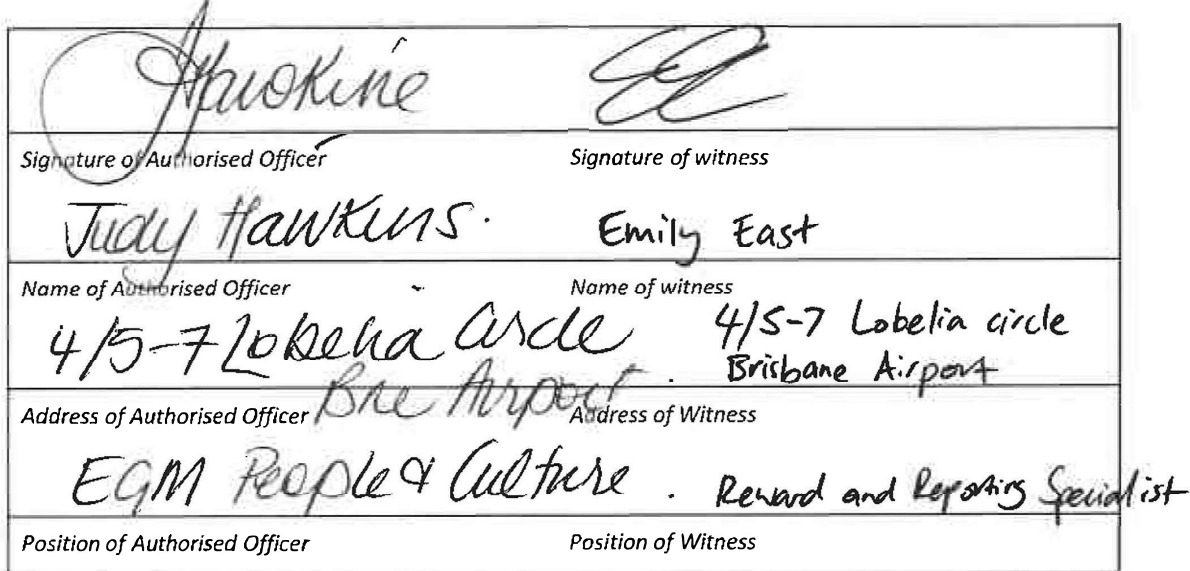 Hawkins
Signature of Authorised Officer Signature of witness
Judy Hawkins. Emily East
Name of Authorised Officer Name of witness
4/5-7 Lobelia Circle 4/5-7 Lobelia circle
Bne Airport. Brisbane Airport
Address of Authorised Officer Address of Witness
EGM People & Culture. Reward and Reporting Specialist
Position of Authorised Officer Position of Witness